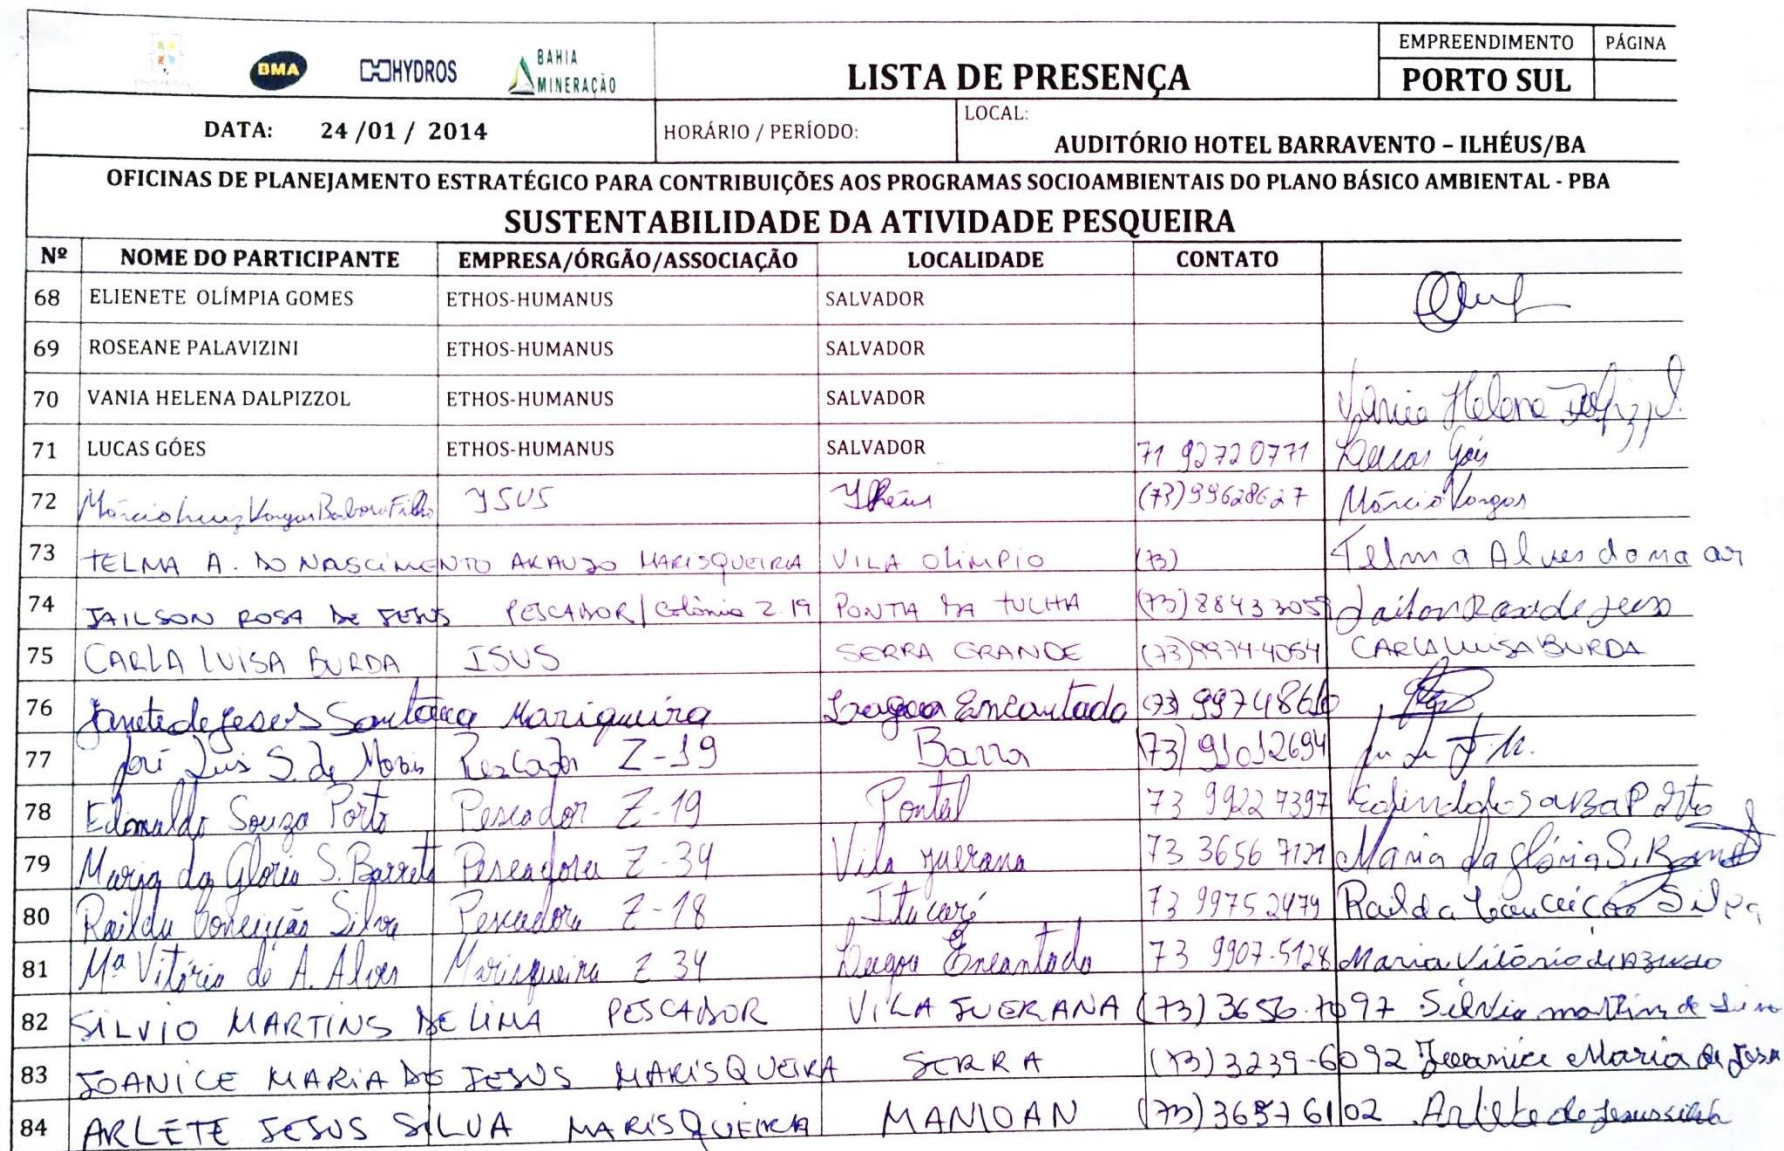 BMA HYDROS BAHIA MINERAÇÃO LISTA DE PRESENÇA EMPREENDIMENTO PÁGINA
PORTO SUL
DATA: 24 /01 / 2014 HORÁRIO / PERÍODO: LOCAL: AUDITÓRIO HOTEL BARRAVENTO – ILHÉUS/BA
OFICINAS DE PLANEJAMENTO ESTRATÉGICO PARA CONTRIBUIÇÕES AOS PROGRAMAS SOCIOAMBIENTAIS DO PLANO BÁSICO AMBIENTAL - PBA
SUSTENTABILIDADE DA ATIVIDADE PESQUEIRA
Nº NOME DO PARTICIPANTE EMPRESA/ÓRGÃO/ASSOCIAÇÃO LOCALIDADE CONTATO
68 ELIENETE OLÍMPIA GOMES ETHOS-HUMANUS SALVADOR
69 ROSEANE PALAVIZINI ETHOS-HUMANUS SALVADOR
70 VANIA HELENA DALPIZZOL ETHOS-HUMANUS SALVADOR Vânia Helena
71 LUCAS GÓES ETHOS-HUMANUS SALVADOR 71 92720771 Lucas Góis
72 Márcio Luiz Vargas Barbosa Filho ISUS Ilhéus (73)99628627 Márcio Vargas
73 TELMA A. DO NASCIMENTO ARAUJO MARISQUEIRA VILA OLIMPIO (73) Telma Alves do na ar
74 JAILSON ROSA DE JESUS PESCADOR/Colônia Z.19 PONTA DA TULHA (73)88433059 Jailson Rosa de Jesus
75 CARLA LUISA BURDA ISUS SERRA GRANDE (73)9974-4054 CARLA LUISA BURDA
76 Janete de Jesus Santana Mariqueira Lagoa Encantado (73) 9974
77 José Luis S. de Morais Pescador Z-19 Barra (73) 91012694
78 Edonaldo Souza Porto Pescador Z-19 Pontal 73 99227397
79 Maria da Gloria S. Barreto Pescadora Z-34 Vila Juerana 73 3656 7121 Maria da Glória S. Barreto
80 Railda Conceição Silva Pescadora Z-18 Itacaré 73 9975 2479 Railda Conceição Silva
81 Mª Vitória de A. Alves Marisqueira Z 34 Lagoa Encantada 73 9907-5128 Maria Vitório de Azevedo
82 SILVIO MARTINS DE LIMA PESCADOR VILA JUERANA (73) 3656-7097 Silvio martins de Lima
83 JOANICE MARIA DE JESUS MARISQUEIRA SERRA (73) 3239-6092 Joanice Maria de Jesus
84 ARLETE JESUS SILVA MARISQUEIRA MANIOAN (73) 3657 6102 Arlete de Jesus silva